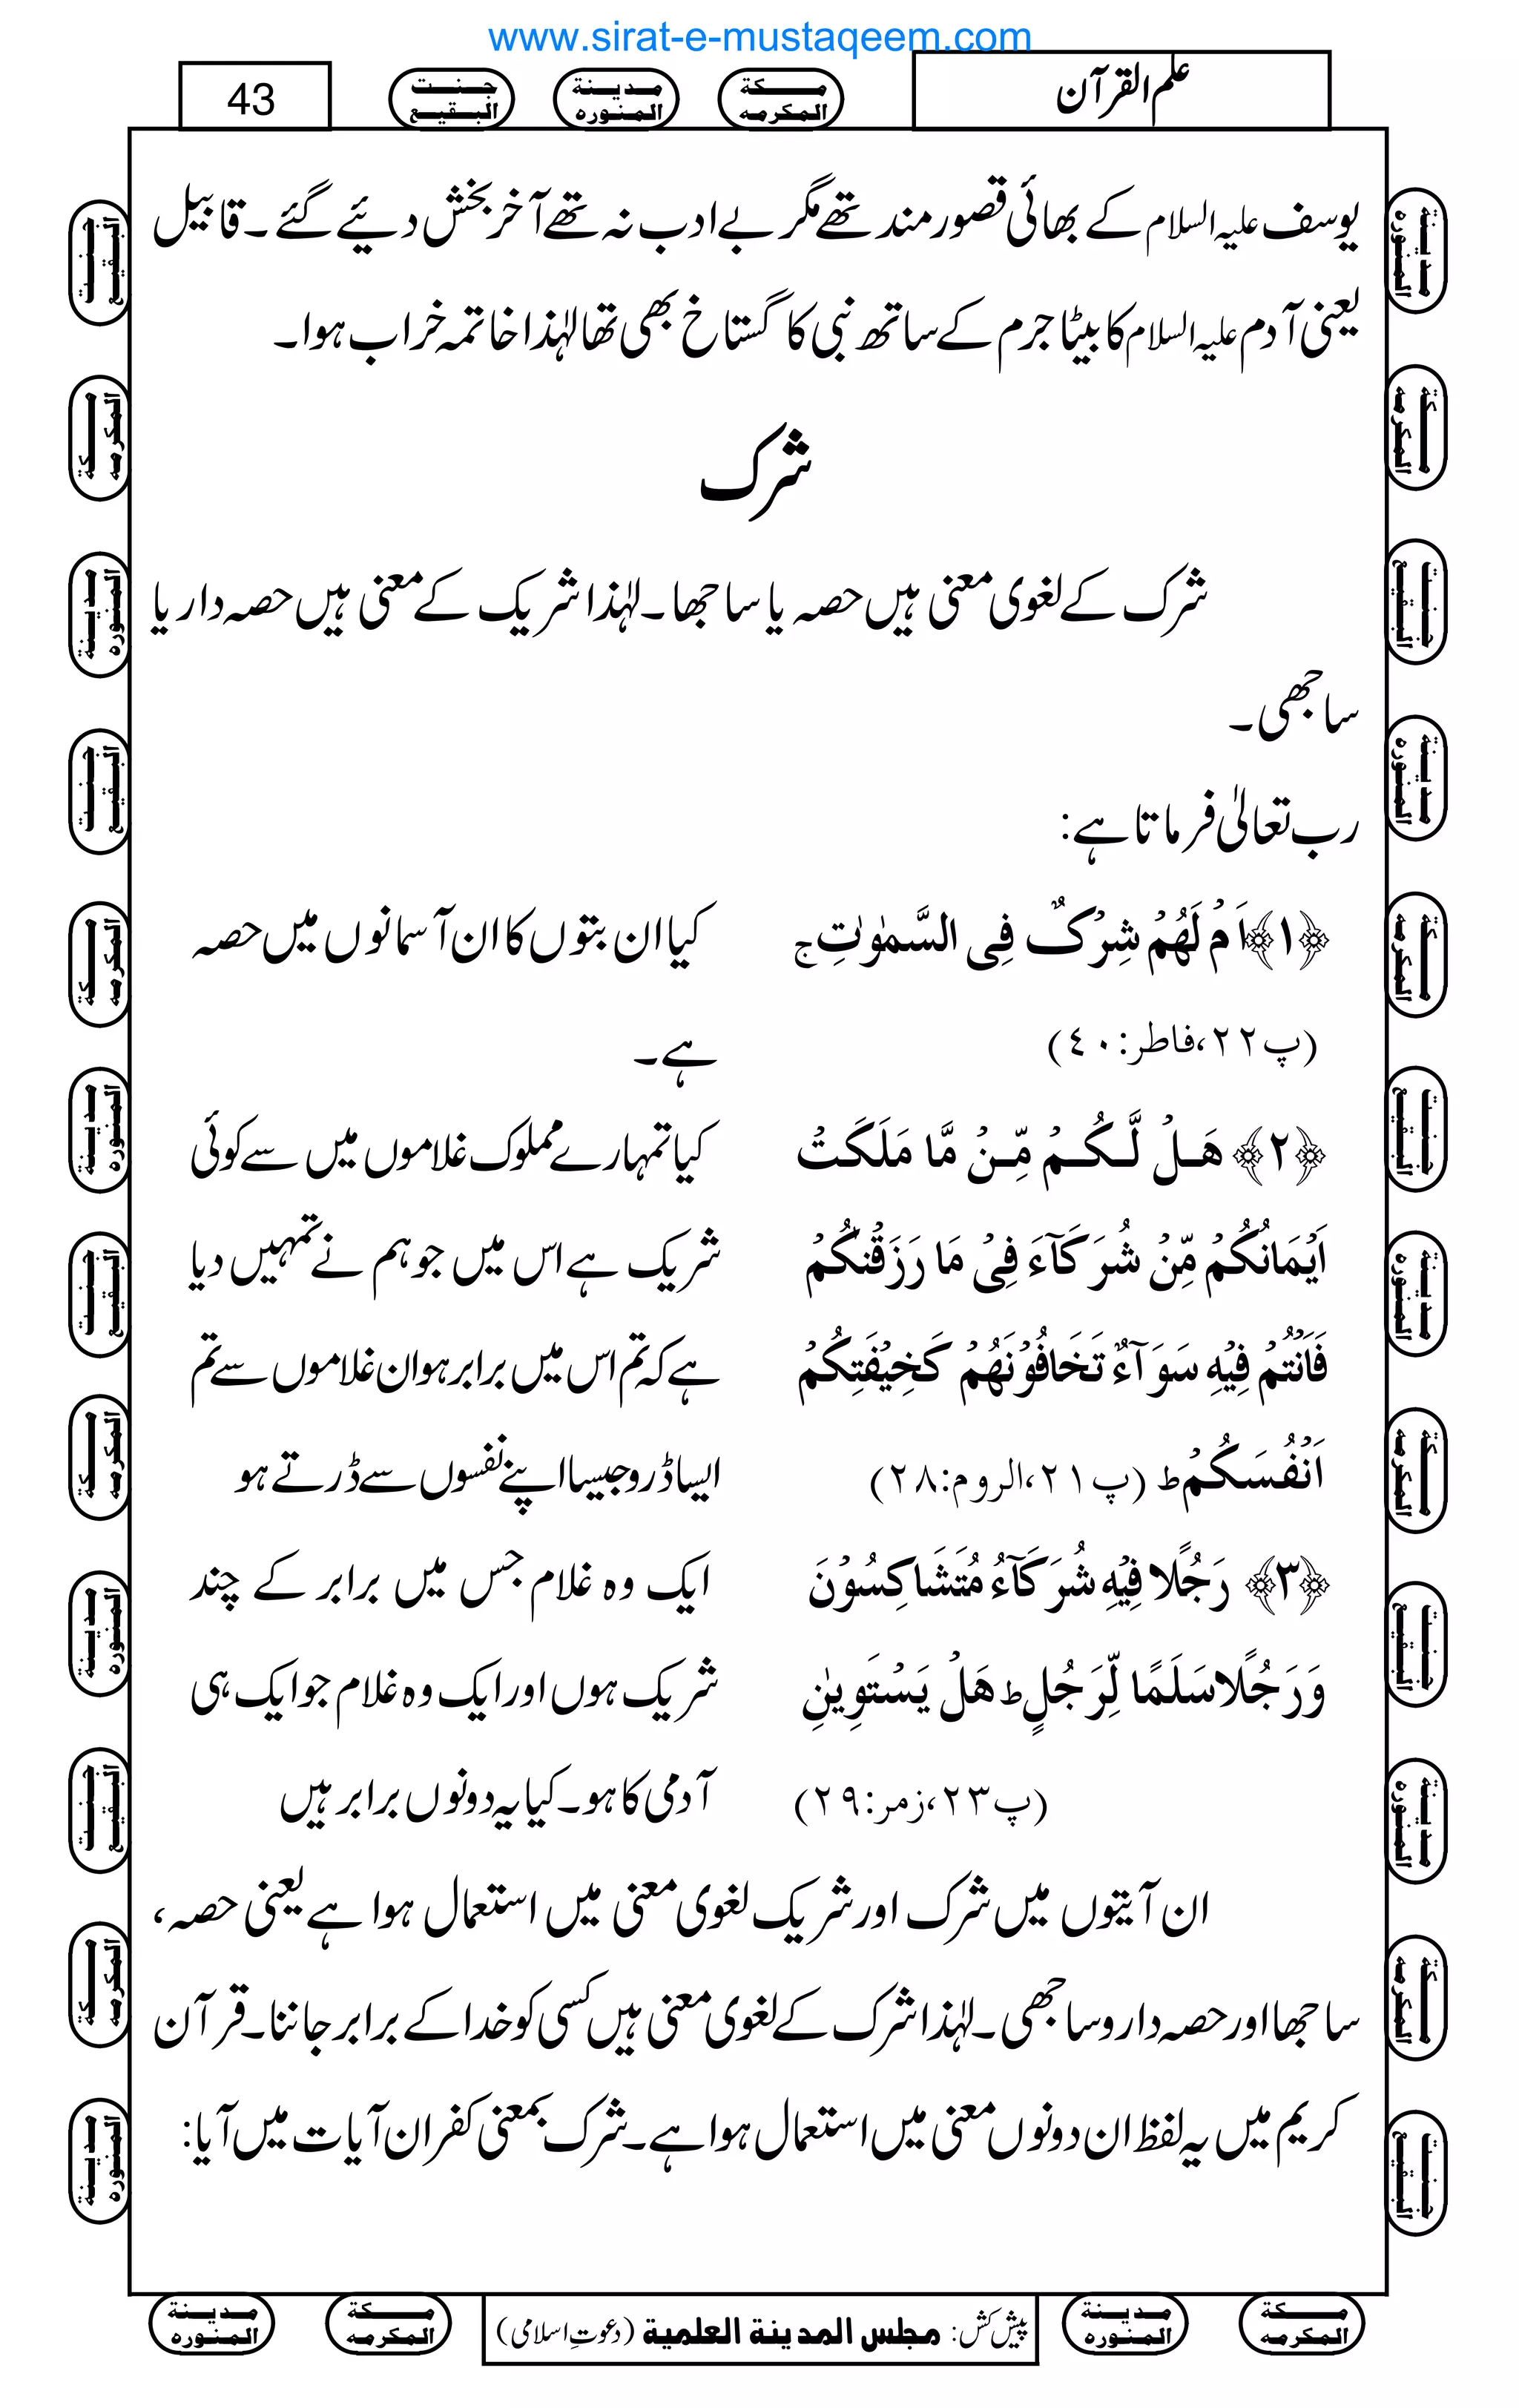 www.sirat-e-mustaqeem.com
علم القرآن
مـكة المكرمه
مـدیـنة المنوره
جـنـت البقیع
43
یوسف علیہ السلام کے بھائی قصور مند تھے مگر بے ادب نہ تھے آخر بخش دیئے گئے ۔ قابیل
یعنی آدم علیہ السلام کا بیٹا جرم کے ساتھ نبی کا گستاخ بھی تھا لہٰذا خاتمہ خراب ہوا۔
شرک
شرک کے لغوی معنی ہیں حصہ یا ساجھا۔ لہٰذا شریک کے معنی ہیں حصہ دار یا
ساجھی ۔
رب تعالٰی فرماتا ہے :
﴿۱﴾ اَمْ لَهُمْ شِرْكٌ فِی السَّمٰوٰتِ ج
(پ۲۲،فاطر:٤٠)
کیا ان بتوں کا ان آسمانوں میں حصہ
ہے ۔
﴿۲﴾ هَلْ لَّكُمْ مِّنْ مَّا مَلَكَتْ
اَیْمَانُكُمْ مِّنْ شُرَكَآءَ فِیْ مَا رَزَقْنٰكُمْ
فَاَنْتُمْ فِیْهِ سَوَآءٌ تَخَافُوْنَهُمْ كَخِیْفَتِكُمْ
اَنْفُسَكُمْ ط (پ۲۱،الروم:۲۸)
کیا تمہارے مملوک غلاموں میں سے کوئی
شریک ہے اس میں جو ہم نے تمہیں دیا
ہے کہ تم اس میں برابر ہو ان غلاموں سے تم
ایسا ڈرو جیسا اپنے نفسوں سے ڈرتے ہو
﴿۳﴾ رَجُلًا فِیْهِ شُرَكَآءُ مُتَشَاكِسُوْنَ
وَرَجُلًا سَلَمًا لِّرَجُلٍ ط هَلْ یَسْتَوِیٰنِ
(پ۲۳،زمر:۲۹)
ایک وہ غلام جس میں برابر کے چند
شریک ہوں اور ایک وہ غلام جو ایک ہی
آدمی کا ہو۔ کیا یہ دونوں برابر ہیں
ان آیتوں میں شرک اور شریک لغوی معنی میں استعمال ہوا ہے یعنی حصہ،
ساجھا اور حصہ دار و ساجھی ۔ لہٰذا شرک کے لغوی معنی ہیں کسی کو خدا کے برابر جاننا۔ قرآن
کریم میں یہ لفظ ان دونوں معنی میں استعمال ہوا ہے۔ شرک بمعنی کفر ان آیات میں آیا:
مـكة المكرمه
مـدیـنة المنوره
پیش کش: مجلس المدینة العلمیة (دعوتِ اسلامی)
مـكة المكرمه
مـدیـنة المنوره